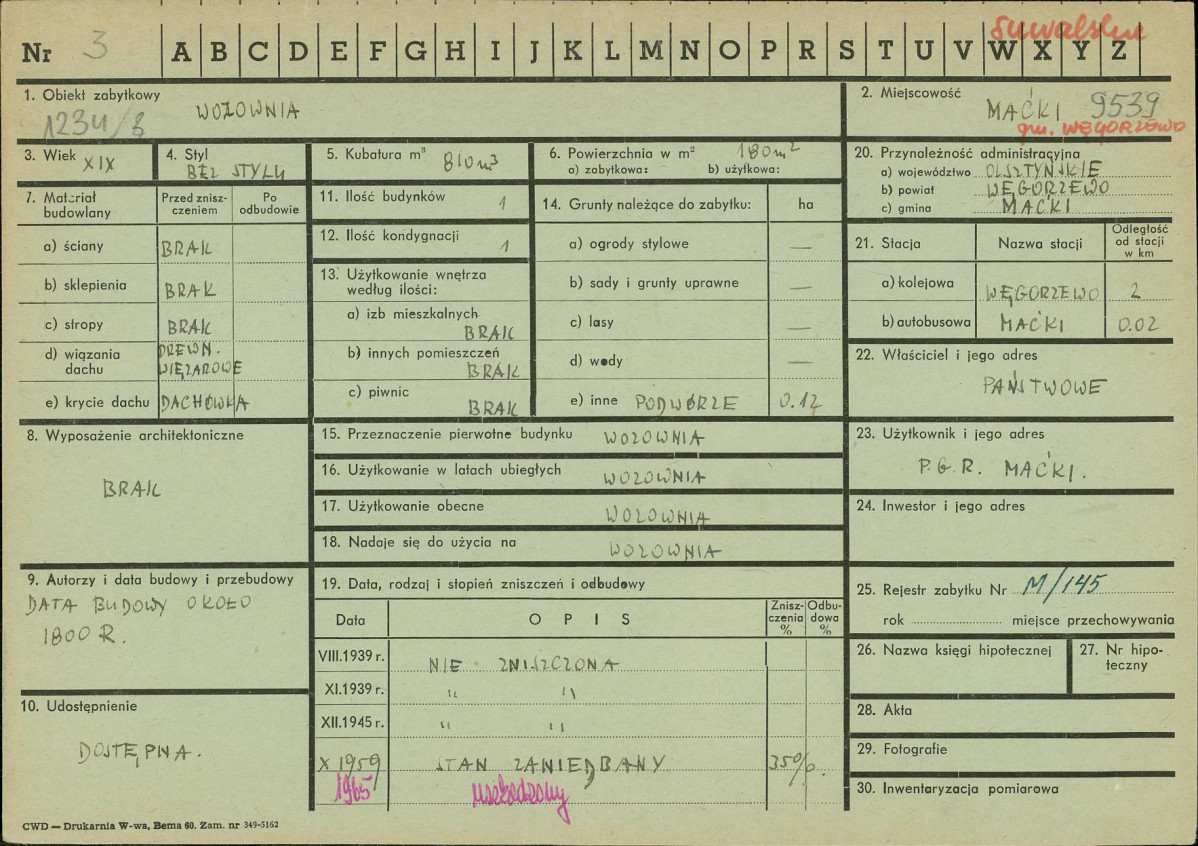 Suwalskie
Nr 3 A B C D E F G H I J K L M N O P R S T U V W X Y Z
1. Obiekt zabytkowy
1234/3 WOZOWNIA
2. Miejscowość
MAĆKI 9539
gm. WĘGORZEWO
3. Wiek XIX
4. Styl
BEZ STYLU
5. Kubatura m³ 810 m³
6. Powierzchnia w m² 180 m²
a) zabytkowa: b) użytkowa:
7. Materiał budowlany
Przed zniszczeniem
Po odbudowie
a) ściany BRAK
b) sklepienia BRAK
c) stropy BRAK
d) wiązania dachu DREWN. WIĘZAROWE
e) krycie dachu DACHÓWKA
8. Wyposażenie architektoniczne
BRAK
9. Autorzy i data budowy i przebudowy
DATA BUDOWY OKOŁO
1800 R.
10. Udostępnienie
DOSTĘPNA.
11. Ilość budynków 1
12. Ilość kondygnacji 1
13. Użytkowanie wnętrza
według ilości:
a) izb mieszkalnych
BRAK
b) innych pomieszczeń
BRAK
c) piwnic
BRAK
14. Grunty należące do zabytku: ha
a) ogrody stylowe —
b) sady i grunty uprawne —
c) lasy —
d) wody —
e) inne PODWÓRZE 0.12
15. Przeznaczenie pierwotne budynku WOZOWNIA
16. Użytkowanie w latach ubiegłych WOZOWNIA
17. Użytkowanie obecne WOZOWNIA
18. Nadaje się do użycia na WOZOWNIA
19. Data, rodzaj i stopień zniszczeń i odbudowy
Data OPIS Zniszczenia % Odbudowa %
VIII.1939 r. NIE ZNISZCZONA
XI.1939 r. " "
XII.1945 r. " "
X 1959 STAN ZANIEDBANY 35%.
1965 uszkodzony
20. Przynależność administracyjna
a) województwo OLSZTYŃSKIE
b) powiat WĘGORZEWO
c) gmina MAĆKI
21. Stacja Nazwa stacji Odległość od stacji w km
a) kolejowa WĘGORZEWO 2
b) autobusowa MAĆKI 0.02
22. Właściciel i jego adres
PAŃSTWOWE
23. Użytkownik i jego adres
P.G.R. MAĆKI.
24. Inwestor i jego adres
25. Rejestr zabytku Nr M/145
rok miejsce przechowywania
26. Nazwa księgi hipotecznej
27. Nr hipoteczny
28. Akta
29. Fotografie
30. Inwentaryzacja pomiarowa
CWD — Drukarnia W-wa, Bema 60. Zam. nr 349-5162